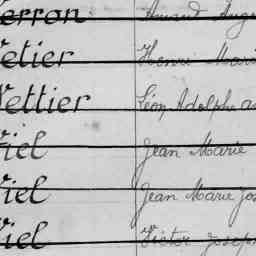 erron Amand Augu
etier Henri Mari
ettier Léon Adolphe
iel Jean Marie
iel Jean Marie Jos
iel Victor Joseph